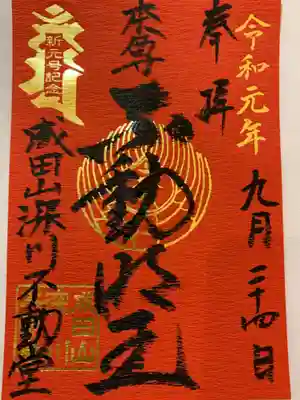 令和元年
九月二十四日
奉拝
本尊
不動明王
新元号記念
成田山深川不動堂